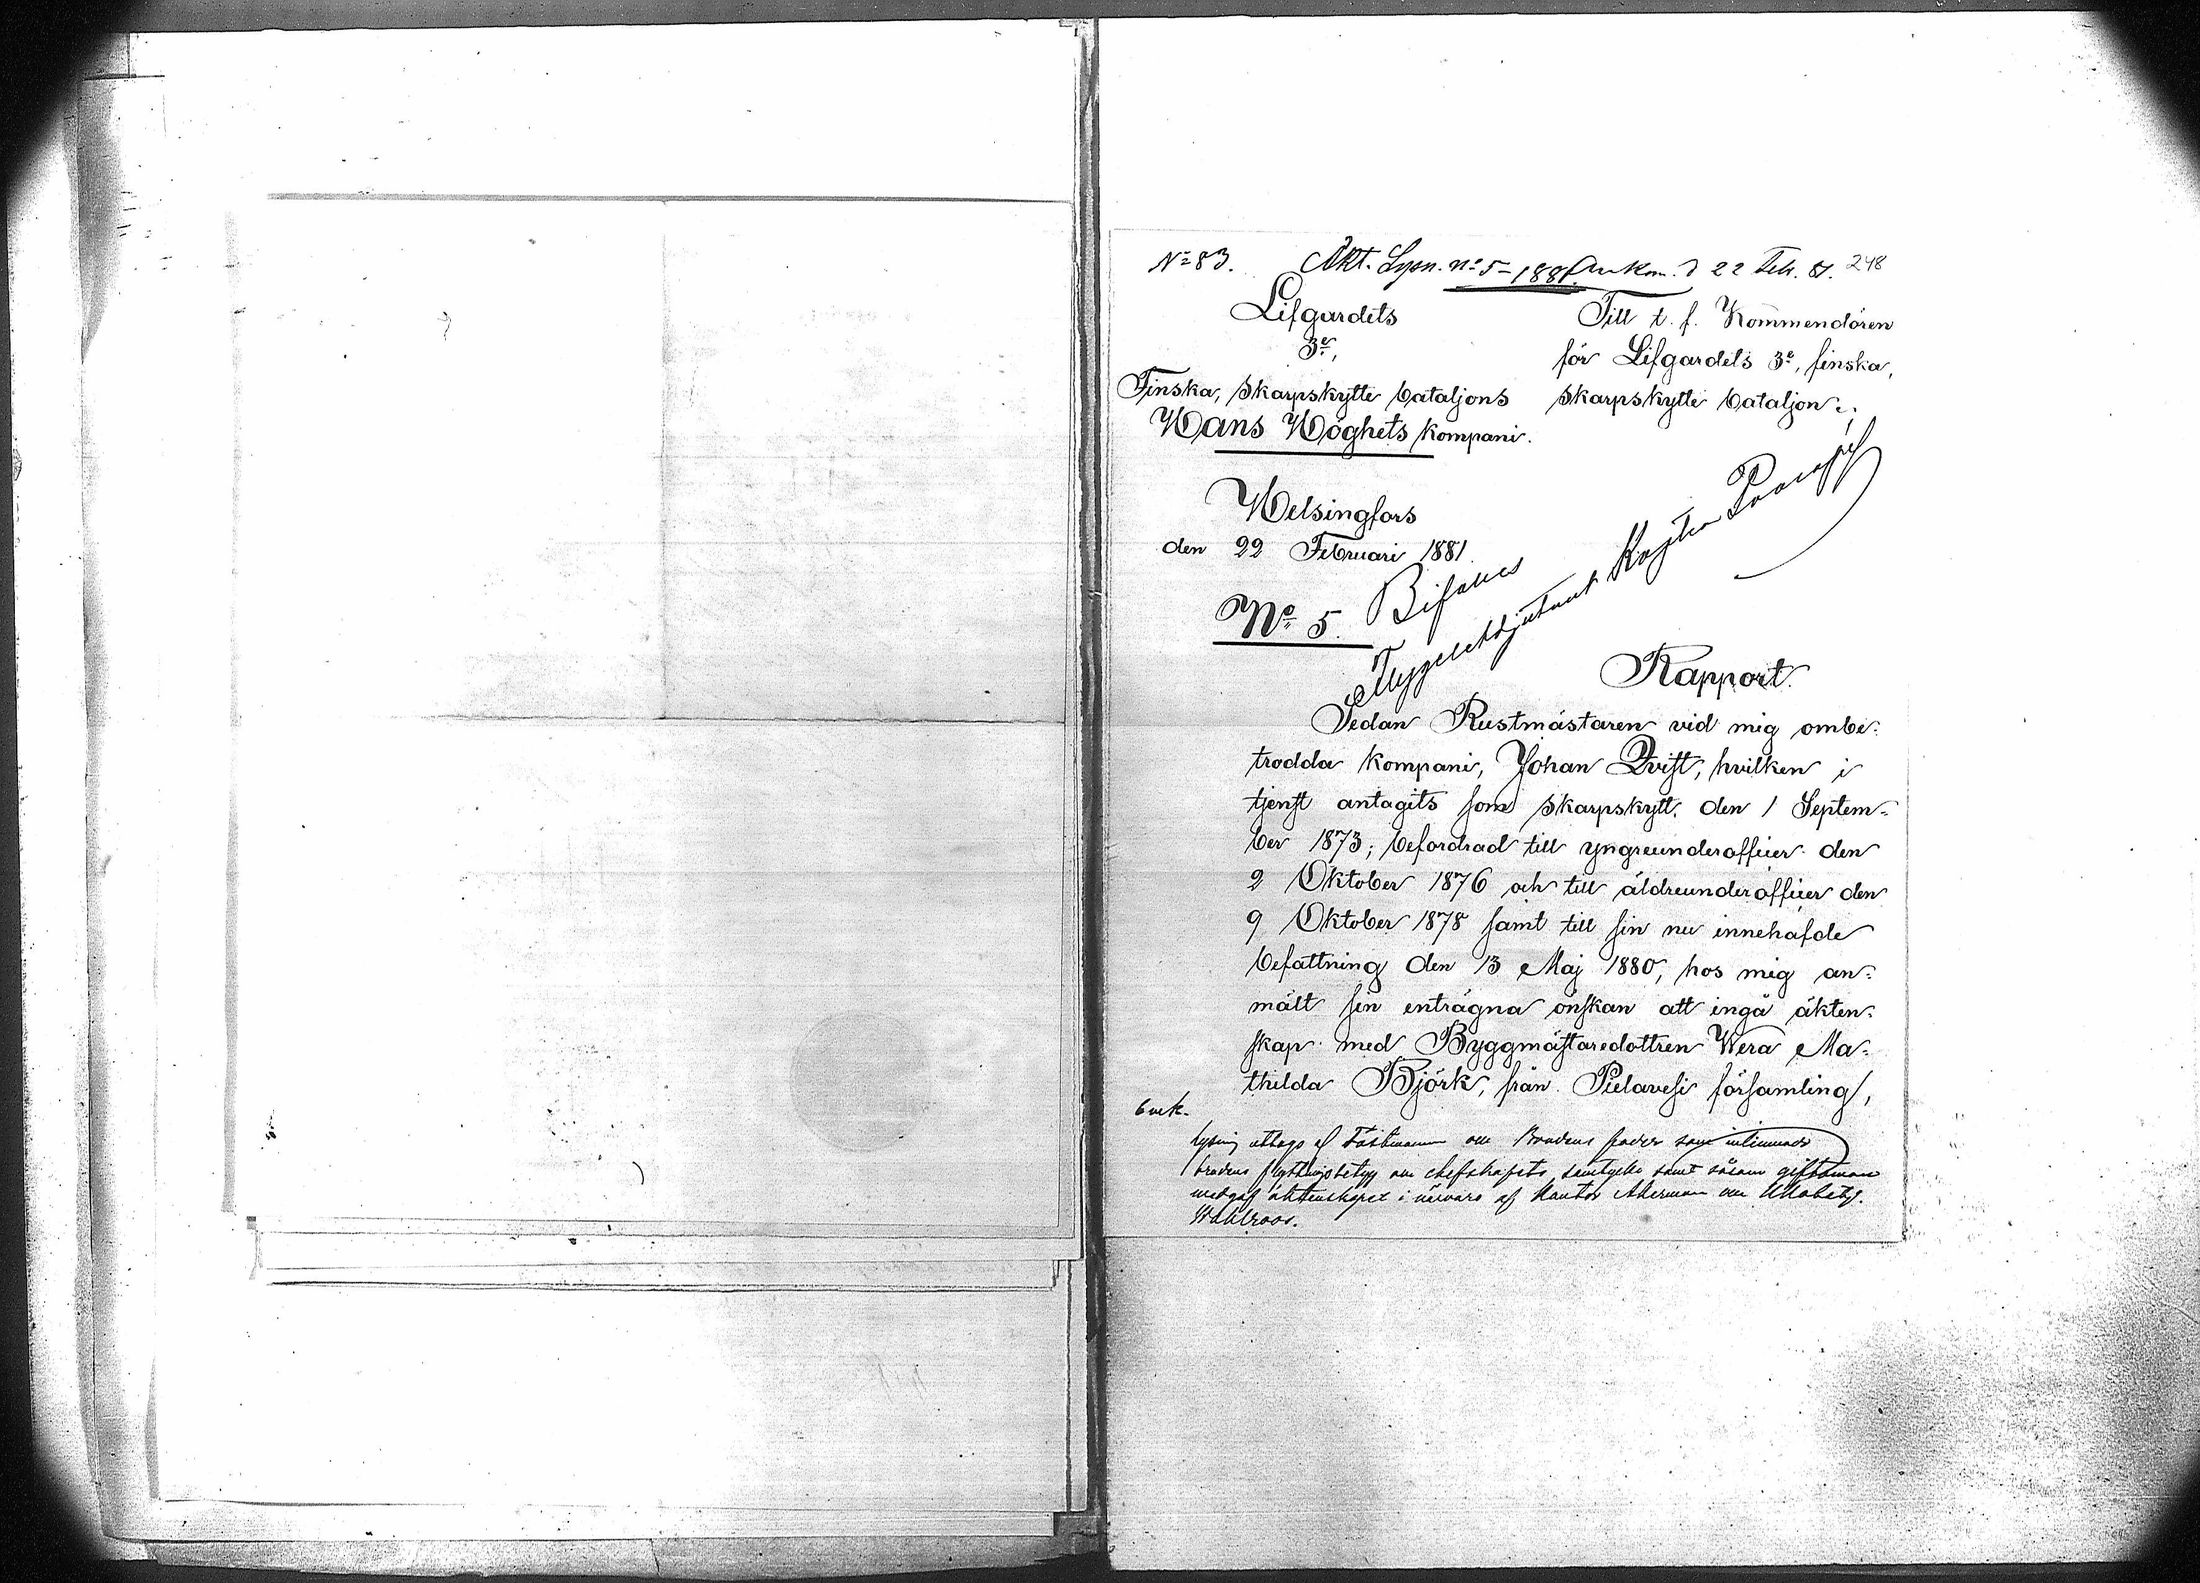 No 83. Äkt. Lysn. no 5 - 1881. Ankom. d 22 Feb. 81. 248
Lifgardets
3e,
Finska, Skarpskytte bataljons
Hans Höghets kompani.
Helsingfors
den 22 Februari 1881.
No 5.
Till t. f. Kommendören
för Lifgardets 3e, finska,
Skarpskytte bataljon.
Bifalles
Flygeladjutant Kapten
Rapport.
Sedan Rustmästaren vid mig ombe-
trodda kompani, Johan Qvist, hvilken i
tjenst antagits som skarpskytt den 1 Septem-
ber 1873; befordrad till yngreunderofficer den
2 Oktober 1876 och till äldreunderofficer den
9 Oktober 1878 samt till sin nu innehafde
befattning den 13 Maj 1880, hos mig an-
mält sin enträgna önskan att ingå äkten-
skap med Byggmästaredottren Wera Ma-
thilda Björk, från Pielavesi församling,
lysning uttogs af Fästmannen och Brudens fader som inlemnade
brudens flyttningsbetyg och chefskapets samtycke samt såsom giftoman
medgaf äktenskapet i närvaro af Kantor Åkerman och
Wahlroos.